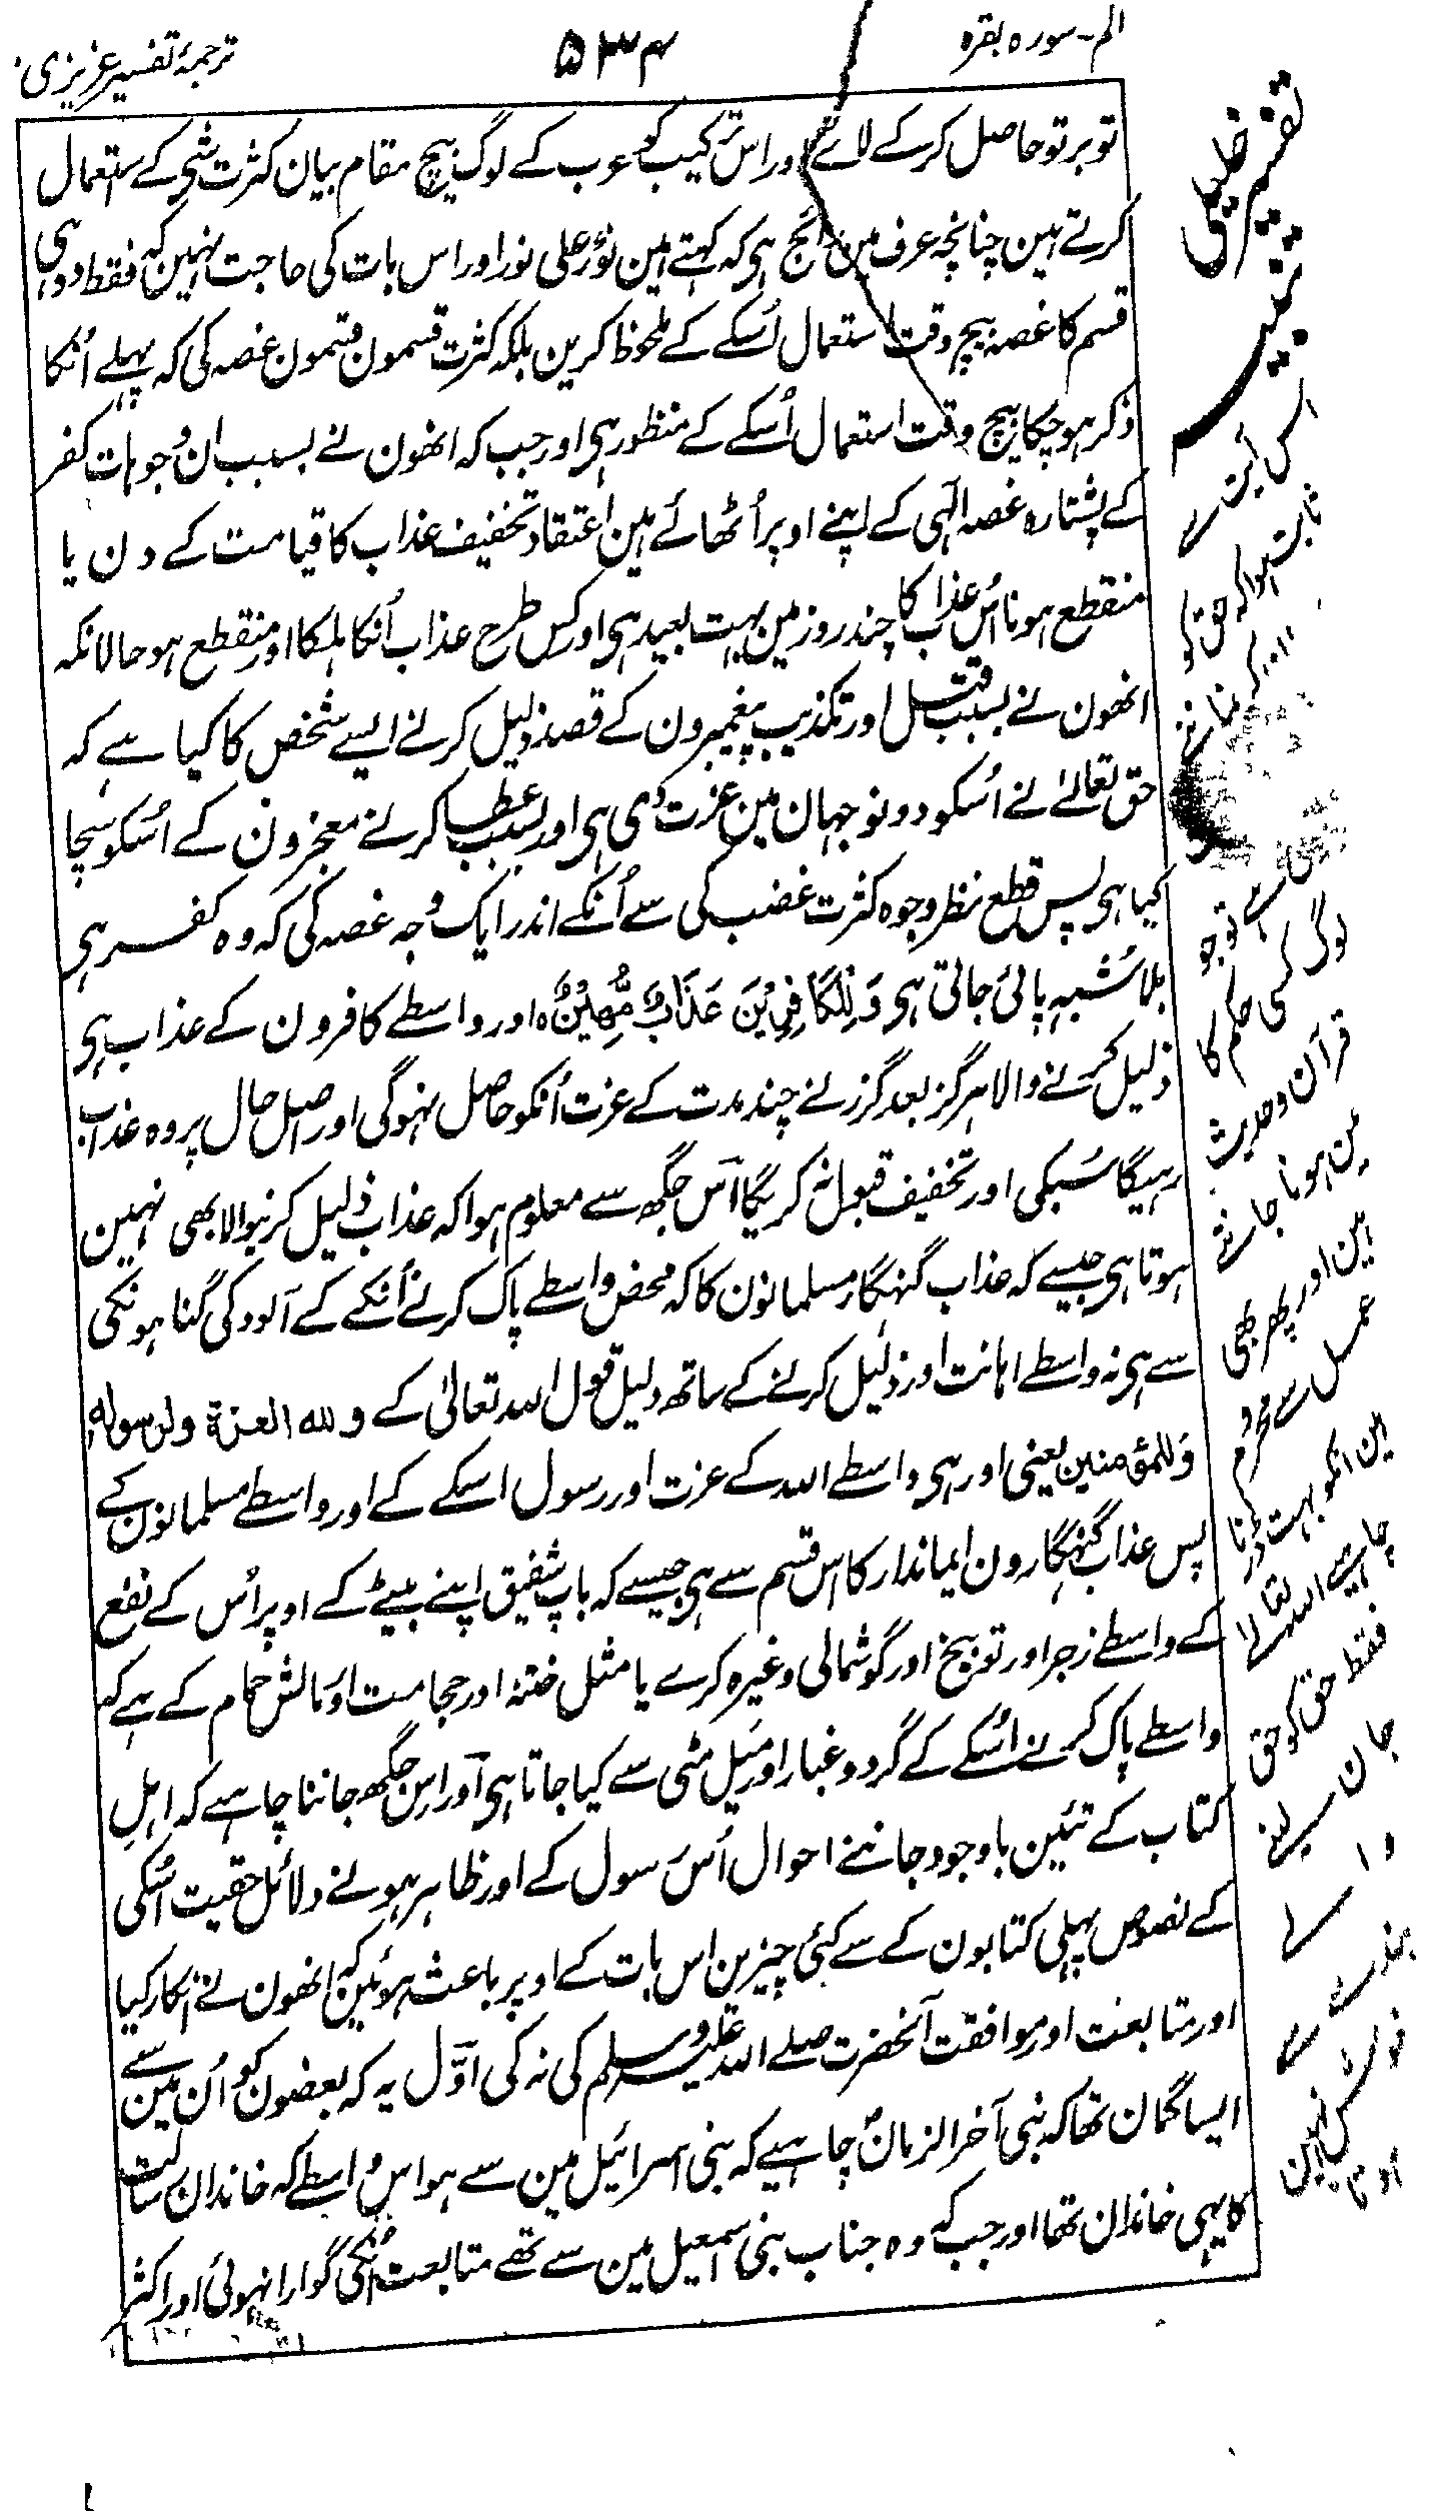 الم-سورہ بقرہ
۵۳۴
ترجمۂ تفسیر عزیزی
تو بر تو حاصل کر کے لائے اور اس ترکیب کو عرب کے لوگ بیچ مقام بیان کثرت شی کے استعمال
کرتے ہین چنانچہ عرف مین رائج ہی کہ کہتے ہین نور علی نور اور اس بات کی حاجت نہین کہ فقط دو ہی
قسم کا غصہ بیچ وقت استعمال اُسکے کے ملحوظ کرین بلکہ کثرت قسمون قسمون غصہ کی کہ پہلے اُنکا
ذکر ہو چکا بیچ وقت استعمال اُسکے کے منظور ہی اور جب کہ انھون نے بسبب ان وجوہات کفر
کے پشتارہ غصہ الٰہی کے اپنے اوپر اُٹھائے ہین اعتقاد تخفیف عذاب کا قیامت کے دن یا
منقطع ہونا اُس عذاب کا چند روز مین بہت بعید ہی اور کس طرح عذاب اُنکا ہلکا اور منقطع ہو حالانکہ
انھون نے بسبب قتل اور تکذیب پیغمبرون کے قصد ذلیل کرنے ایسے شخص کا کیا ہے کہ
حق تعالےٰ نے اُسکو دونو جہان مین عزت دی ہی اور بسبب عطا کرنے معجزون کے اُسکو سچا
کیا ہی پس قطع نظر وجوہ کثرت غضب کی سے اُنکے اندر ایک وجہ غصہ کی کہ وہ کفر ہی
بلا شبہہ پائی جاتی ہی وَلِلْكَافِرِيْنَ عَذَابٌ مُّهِيْنٌ ہ اور واسطے کافرون کے عذاب ہی
ذلیل کرنے والا ہرگز بعد گزرنے چند مدت کے عزت اُنکو حاصل نہوگی اور اصل حال پر وہ عذاب
رہیگا سُبکی اور تخفیف قبول نہ کریگا اس جگھ سے معلوم ہوا کہ عذاب ذلیل کرنیوالا بھی نہین
ہوتا ہی جیسے کہ عذاب گنہگار مسلمانون کا کہ محض واسطے پاک کرنے اُنکے کے آلودگی گناہونکی
سے ہی نہ واسطے اہانت اور ذلیل کرنے کے ساتھ دلیل قول اللہ تعالیٰ کے و للہ العزۃ ولرسولہ
وَللمؤمنین یعنی اور ہی واسطے اللہ کے عزت اور رسول اسکے کے اور واسطے مسلمانون کے
پس عذاب گنہگارون ایماندار کا اس قسم سے ہی جیسے کہ باپ شفیق اپنے بیٹے کے اوپر اُس کے نفع
کے واسطے زجر اور توبیخ اور گوشمالی وغیرہ کرے یا مثل ختنہ اور حجامت اور مالش حمام کے ہے کہ
واسطے پاک کرنے اُسکے کے گرد و غبار اور میل مٹی سے کیا جاتا ہی اور اس جگھ جاننا چاہیے کہ اہلِ
کتاب کے تئین باوجود جاننے احوال اُس رسول کے اور ظاہر ہونے دلائل حقیت اُسکی
کے نصوص پہلی کتابون کے سے کئی چیزین اس بات کے اوپر باعث ہوئین کہ انھون نے انکار کیا
اور متابعت اور موافقت آنحضرت صلے اللہ علیہ وسلم کی نہ کی اوّل یہ کہ بعضون کو اُن مین سے
ایسا گمان تھا کہ نبی آخر الزمان چاہیے کہ بنی اسرائیل مین سے ہو اس واسطے کہ خاندان رسالت
کا یہی خاندان تھا اور جب کہ وہ جناب بنی اسمعیل مین سے تھے متابعت اُنکی گوارا نہوئی اور اکثر
اس آیت سے
ثابت ہوا کہ حق تعالے
لوگ کسی حکم کا
قرآن و حدیث
مین ہونا جانتے
ہین اور پھر بھی
عمل سے محروم
ہین انکو بہت ڈرنا
چاہیے اللہ تعالے
فقط حق کو حق
جان لینے
والے
بندے سے
خوش نہین